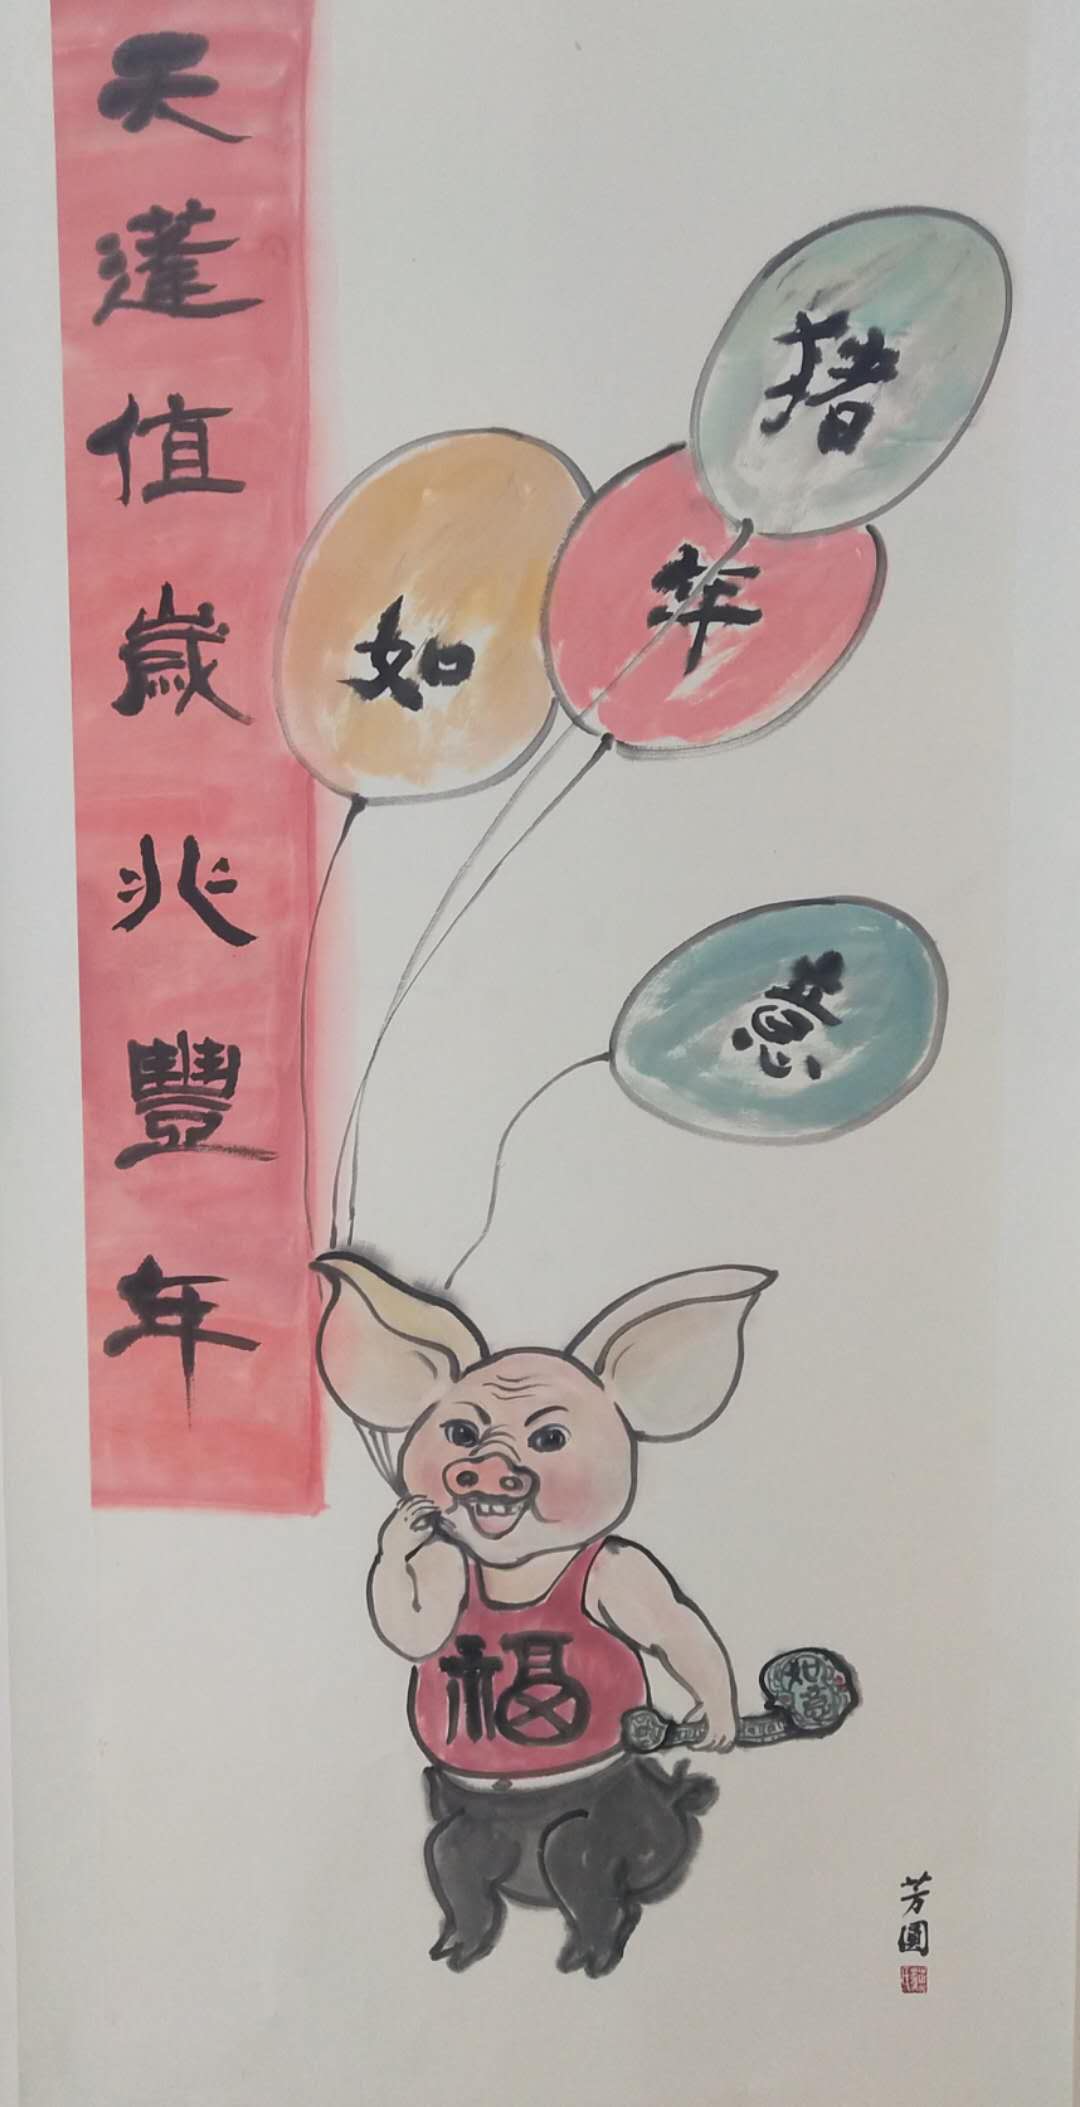 天蓬值歲兆豐年
猪
年
如
意
福
如意
芳圓